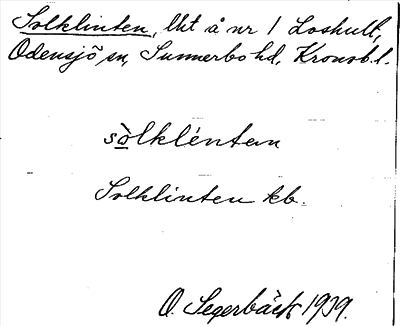 Solklinten, lkt å nr 1 Loshult,
Odensjö sn, Sunnerbo hd, Kronob. l.
sòlkléntan
Solklinten kb.
O. Segerbäck 1939.